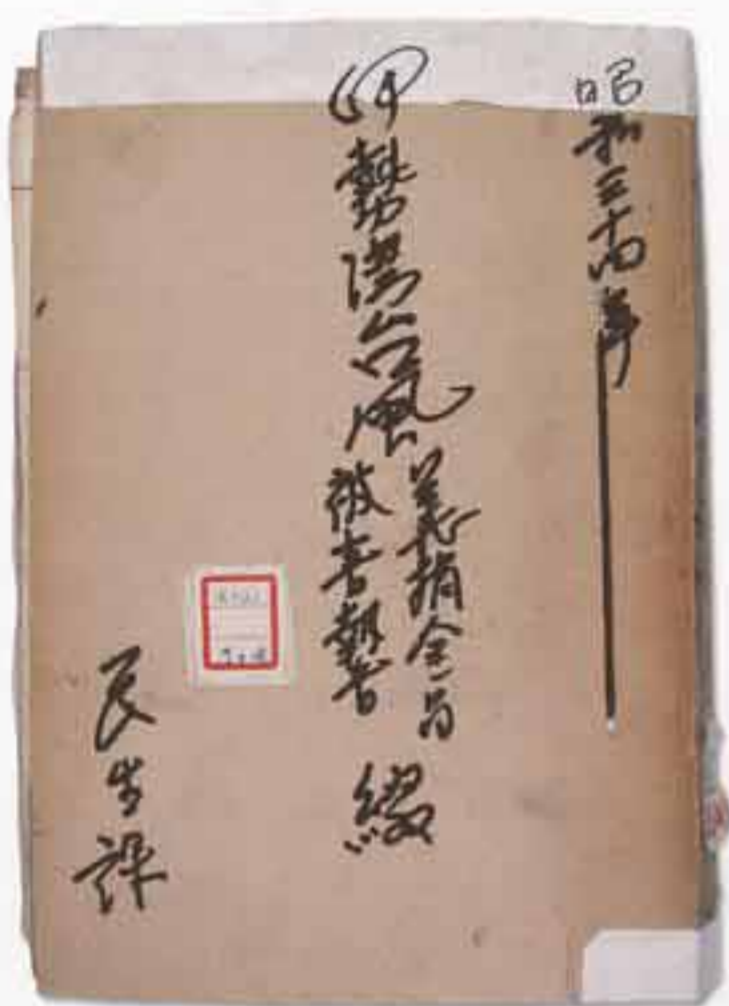 昭和三十四年
伊勢湾台風
義捐金品
被害報告
綴
民生課